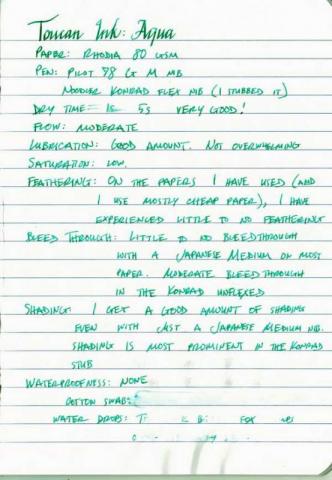 Toucan Ink: Aqua
Paper: Rhodia 80 gsm
Pen: Pilot 78 G M MB
Noodler Konrad Flex Nib (I stubbed it)
Dry Time= 5s Very Good!
Flow: Moderate
Lubrication: Good amount. Not overwhelming
Saturation: Low.
Feathering: On the papers I have used (and
I use mostly cheap paper), I have
experienced little to no feathering
Bleed Through: Little to no bleedthrough
with a Japanese Medium on most
paper. Moderate bleedthrough
in the Konrad unflexed
Shading: I get a good amount of shading
even with just a Japanese Medium nib.
Shading is most prominent in the Konrad
stub
Waterproofness: None
Cotton Swab:
Water Drops: